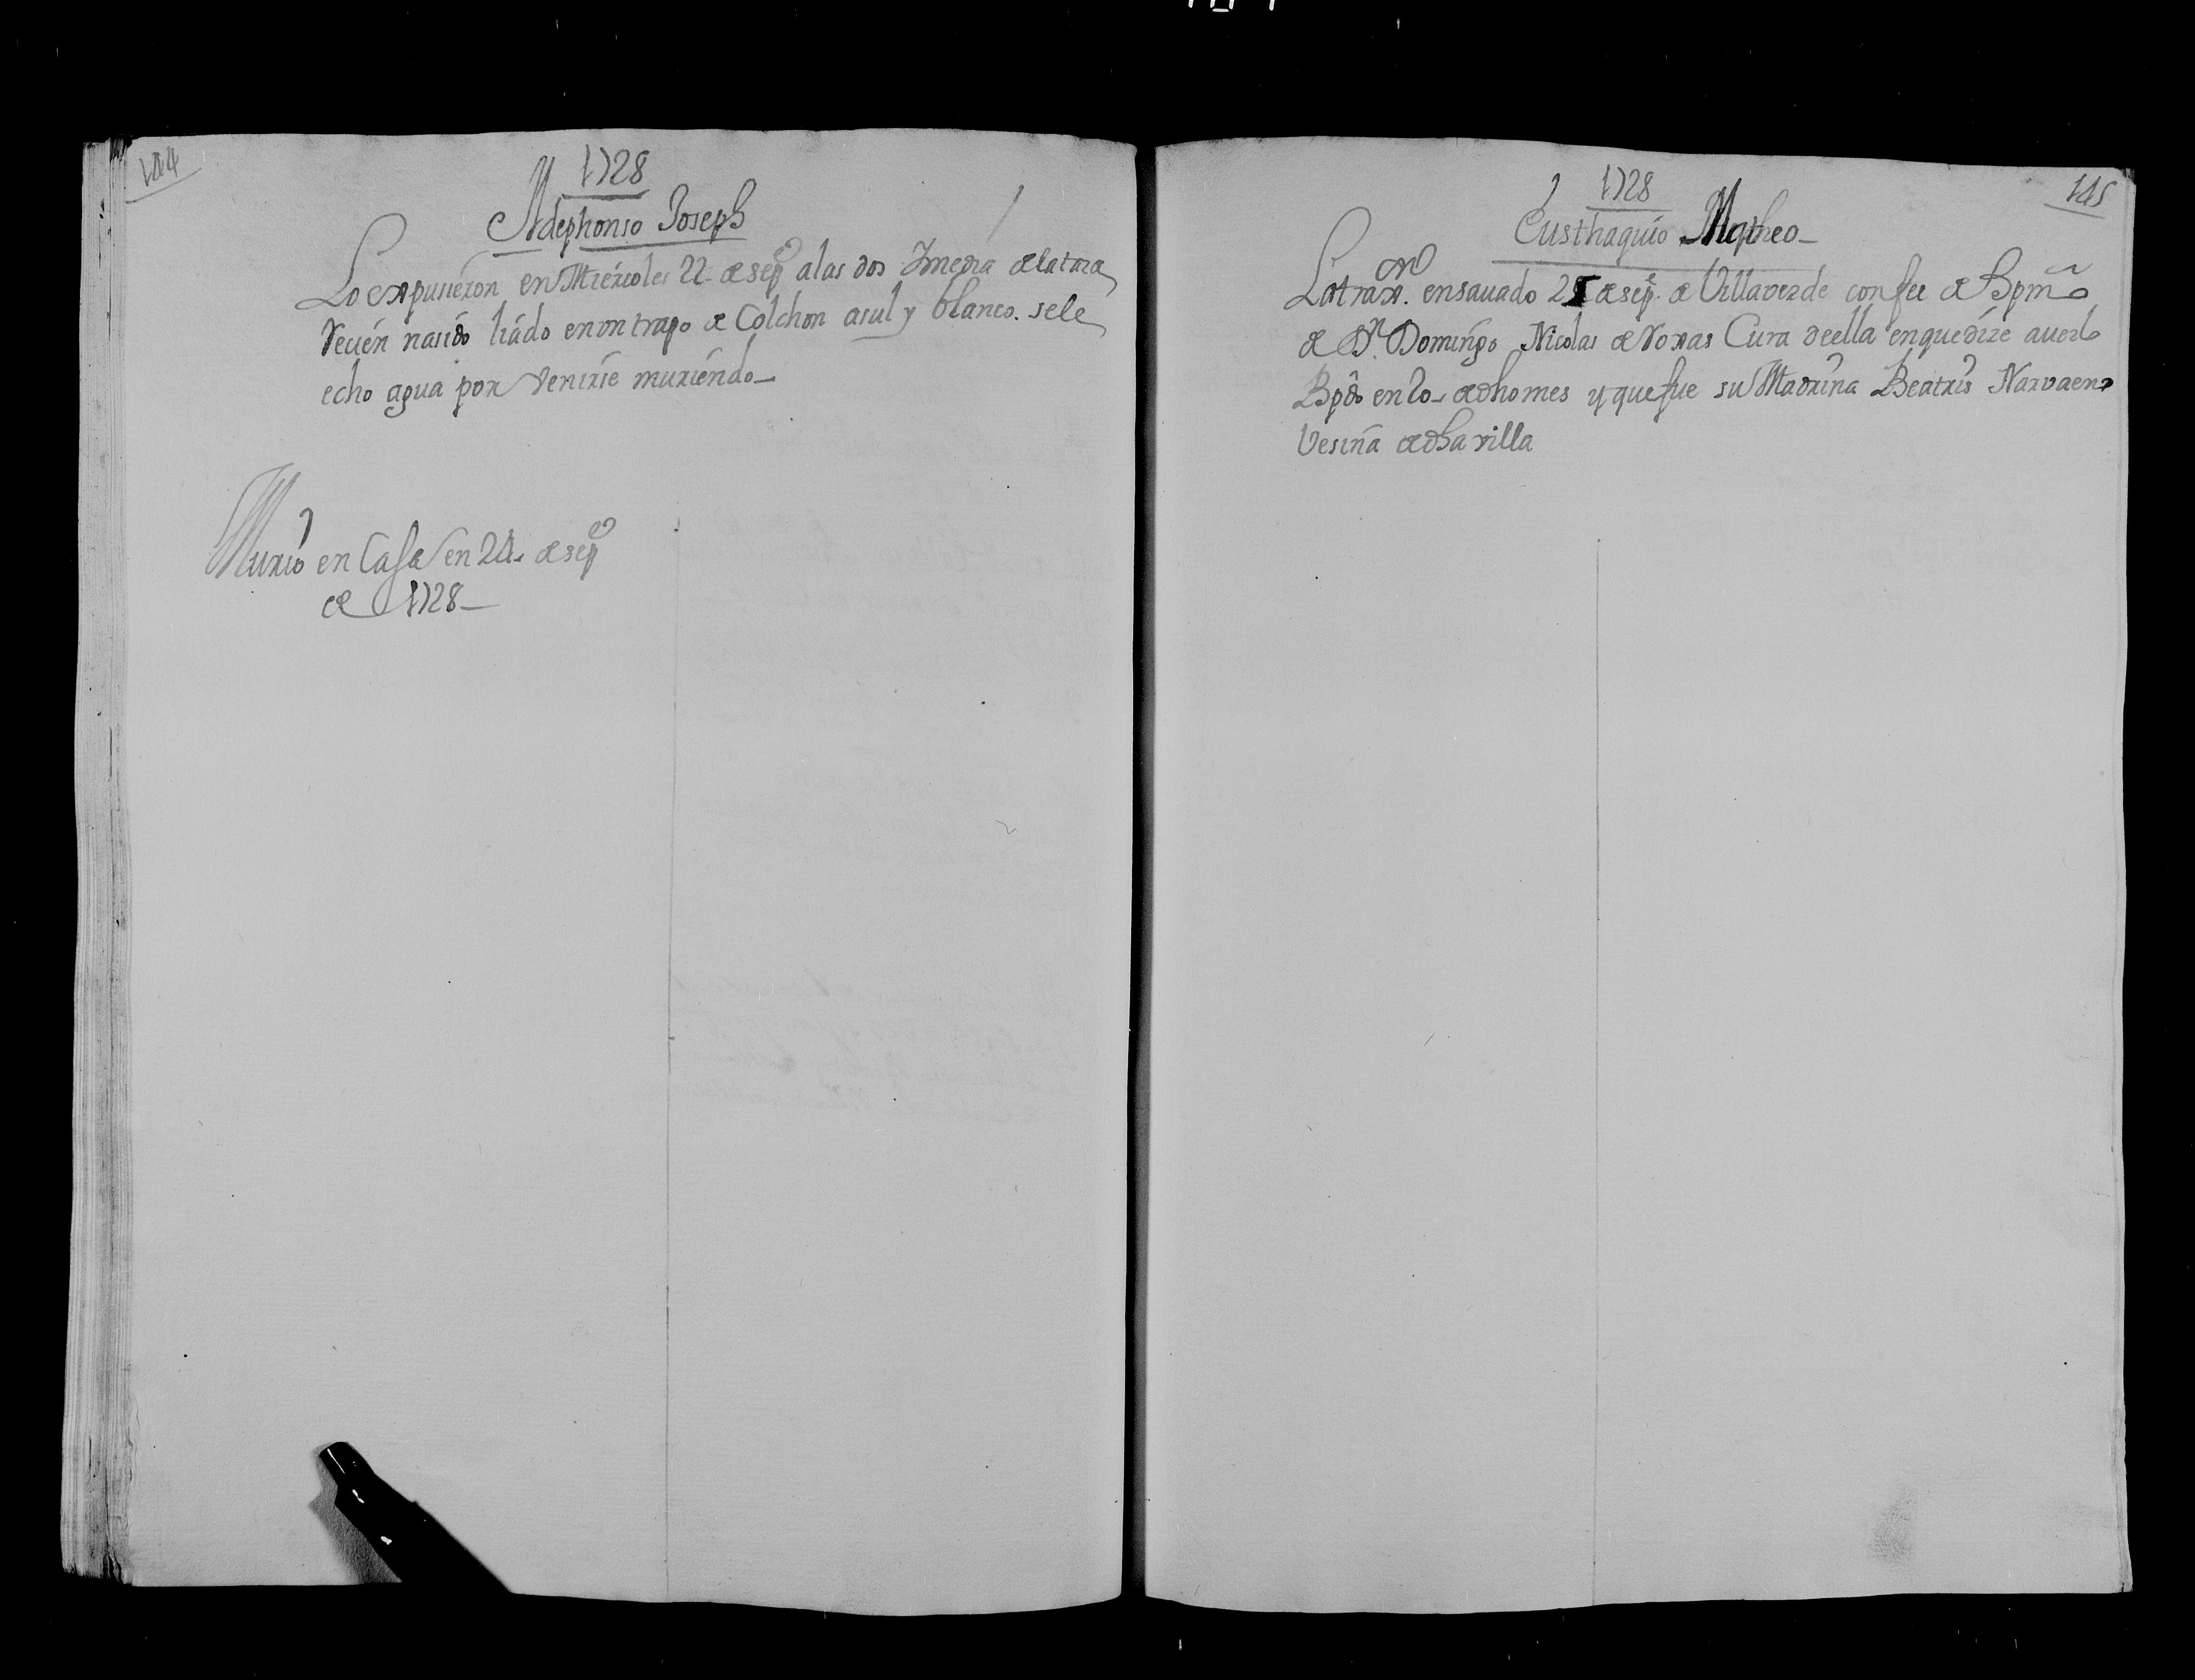 144
1728
Ildephonso Joseph
Lo expusieron en Miercoles 22 de sepe a las dos Imedia de la tarde
recien nasido liado en un trapo de Colchon asul y blanco. se le
echo agua por Venirse muriendo
Murio en Casa en 24 de sepe
de 1728
145
1728
Eusthaquio Matheo
en sauado 25 de sep. de Villaverde con fee de Bpmo
de Dn. Domingo Nicolas de Roxas Cura de ella en que dize auerlo
Bpdo en 20 de dho mes y que fue su Madrina Beatris Narvaez
Vesina de dha villa